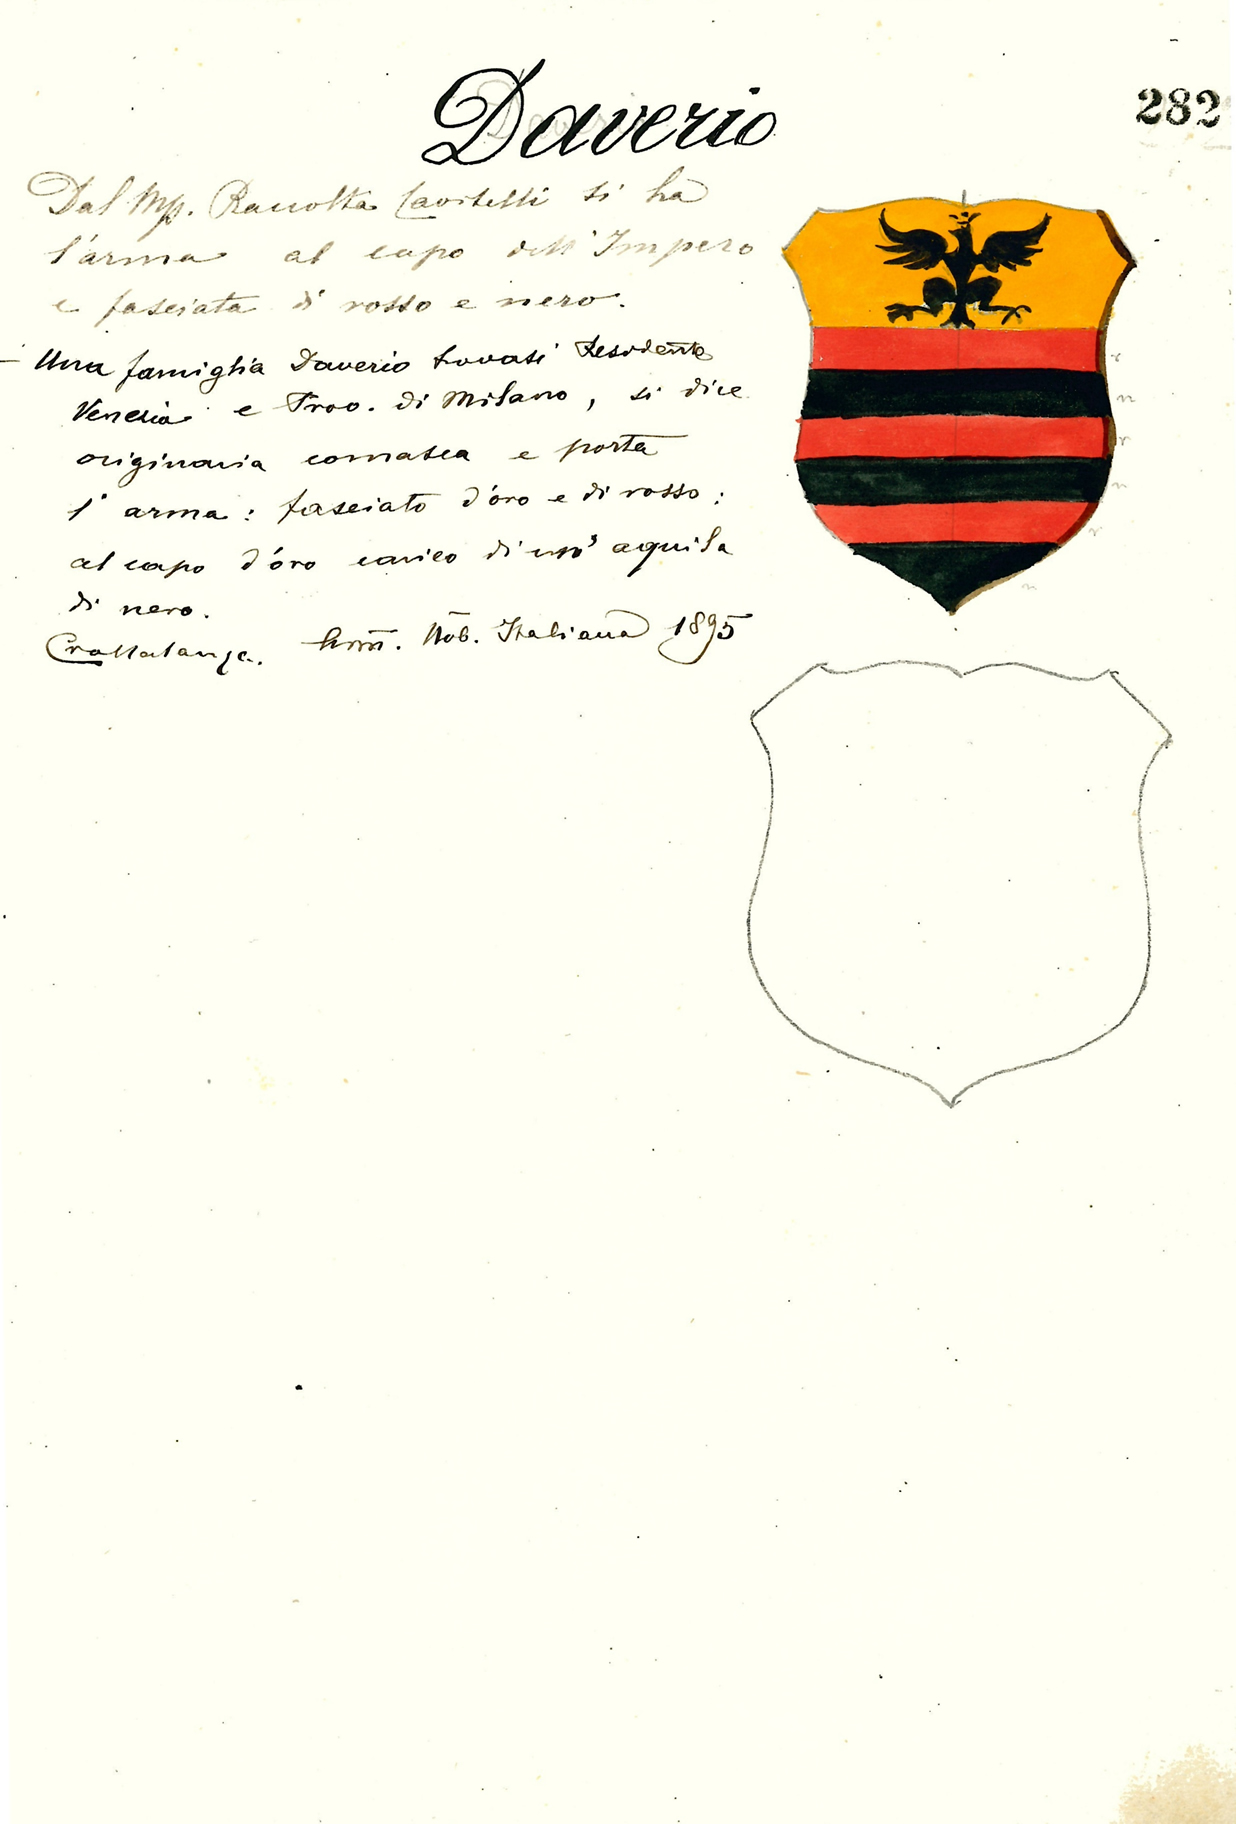 Daverio
282
Dal Mp. Raccolta Cavitelli si ha
l'arma al capo dell'Impero
e fasciata di rosso e nero.
- Una famiglia Daverio trovasi residente
Venezia e Prov. di Milano, si dice
originaria comasca e porta
l'arma: fasciato d'oro e di rosso;
al capo d'oro carico di un' aquila
di nero.
Crollalanza. Ann. Nob. Italiana 1895
r
n
r
n
r
n